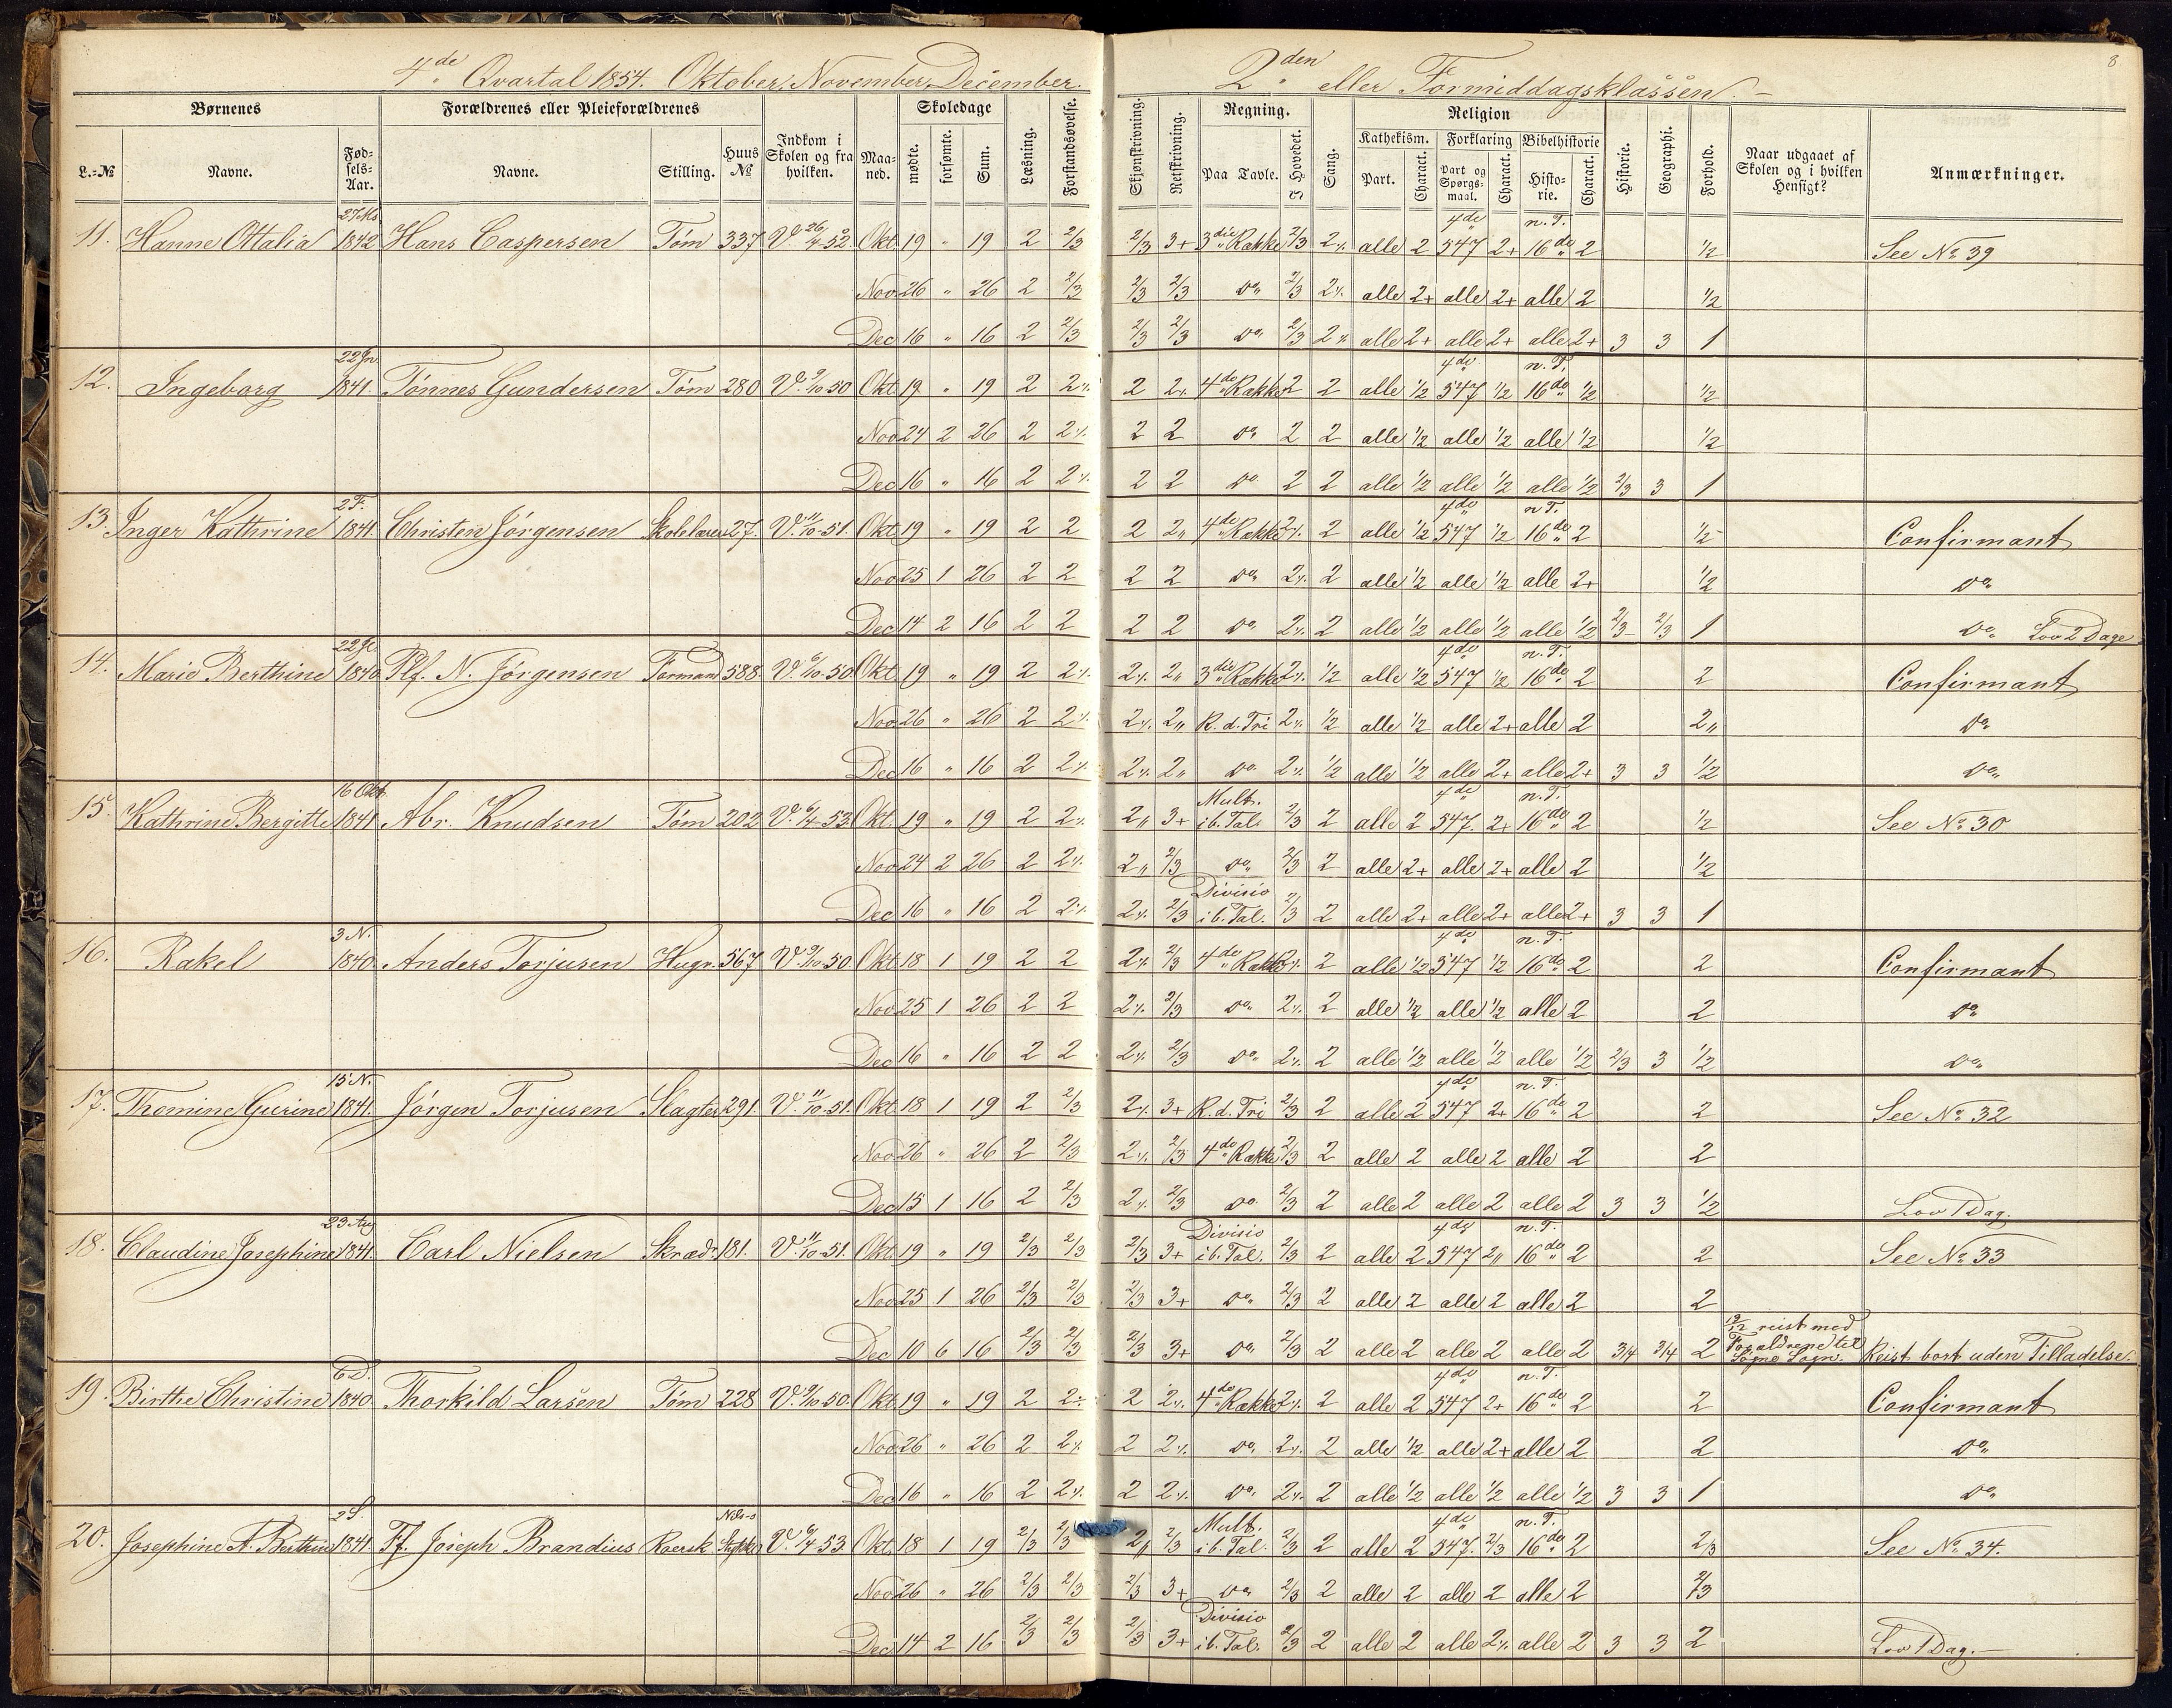 4de Qvartal 1854. Oktober, November, December.
2den eller Formiddagsklassen.
8
Børnenes
Forældrenes eller Pleieforældrenes
Indkom i Skolen og fra hvilken.
Maaned.
Skoledage
Læsning.
Forstandsøvelse.
Skjønskrivning.
Retskrivning.
Regning.
Sang.
Religion
Historie.
Geographi.
Forhold.
Naar udgaaet af Skolen og i hvilken Hensigt?
Anmærkninger.
L.-№ Navne. Fødsels-Aar. Navne. Stilling. Huus № mødte. forsømte. Sum.
Paa Tavle. I Hovedet. Kathekism. Forklaring Bibelhistorie
Part. Charact. Part og Spørgsmaal. Charact. Historie. Charact.
4de n. T.
11. Hanne Ottalia 1842 Hans Caspersen Tøm 337 V. 26/4 52. Okt. 19 " 19 2 2/3 2/3 3+ 3die Række 2/3 2% alle 2 547 2+ 16de 2 1/2 See No 39
Nov. 26 " 26 2 2/3 2/3 2/3 do 2/3 2% alle 2+ alle 2+ alle 2 1/2
Dec 16 " 16 2 2/3 2/3 2/3 do 2/3 2% alle 2+ alle 2+ alle 2+ 3 3 1
22 Jn. 4de n. T.
12. Ingeborg 1841. Tønnes Gundersen Tøm 280 V. 9/10 50 Okt. 19 " 19 2 2% 2 2% 4de Række 2 2 alle 1/2 547 1/2 16de 1/2 1/2
Nov 24 2 26 2 2% 2 2 do 2 2 alle 1/2 alle 1/2 alle 1/2 1/2
Dec 16 " 16 2 2% 2 2 do 2 2 alle 1/2 alle 1/2 alle 1/2 2/3 3 1
2 F. 4de n. T.
13. Inger Kathrine 1841 Christen Jörgensen Skolelærer 27. V. 11/10 51. Okt. 19 " 19 2 2 2 2" 4de Række 2% 2 alle 1/2 547 1/2 16de 2 1/2 Confirmant
Nov 25 1 26 2 2 2 2 do 2% 2 alle 1/2 alle 1/2 alle 2+ 1/2 do
Dec 14 2 16 2 2 2 2 do 2% 2 alle 1/2 alle 1/2 alle 1/2 2/3 2/3 1 do Lov 2 Dage
4de n. T.
14. Marie Berthine 1840 Plf. N. Jörgensen Formand 588. V. 9/10 50. Okt. 19 " 19 2 2% 2% 2" 3die Række 2% 1/2 alle 1/2 547 1/2 16de 2 2 Confirmant
Nov 26 " 26 2 2% 2% 2" R. d. Tri 2% 1/2 alle 1/2 alle 2+ alle 2 2" do
Dec 16 " 16 2 2% 2% 2" do 2% 1/2 alle 1/2 alle 2+ alle 2+ 3 3 1/2 do
16 Okt. Mult. 4de n. T.
15. Kathrine Bergitte 1841 Abr. Knudsen Tøm 202 V. 6/4 53. Okt. 19 " 19 2 2% 2" 3+ i b. Tal. 2/3 2 alle 2 547. 2+ 16de 2 1/2 See No 30
Nov 24 2 26 2 2% 2" 2/3 do 2/3 2 alle 2+ alle 2+ alle 2 1/2
Divisio
Dec 16 " 16 2 2% 2% 2/3 i b. Tal. 2/3 2 alle 2+ alle 2+ alle 2+ 3 3 1
3 N. 4de n. T.
16. Rakel 1840 Anders Torjusen Hugr. 567 V. 9/10 50. Okt 18 1 19 2 2 2% 2/3 4de Række 2% 2 alle 1/2 547 1/2 16de 2 2 Confirmant
Nov 25 1 26 2 2 2% 2/3 do 2% 2 alle 1/2 alle 1/2 alle 2 2 do
Dec 16 " 16 2 2 2% 2/3 do 2% 2 alle 1/2 alle 1/2 alle 1/2 2/3 3 1/2 do
15 N. 4de n. T.
17. Themine Gurine 1841. Jörgen Torjusen Slagter 291. V. 11/10 51. Okt 18 1 19 2 2/3 2% 3+ R. d. Tri 2/3 2 alle 2 547 2+ 16de 2 2 See No 32
Nov 26 " 26 2 2/3 2% 2/3 4de Række 2/3 2 alle 2 alle 2 alle 2 2
Dec 15 1 16 2 2/3 2% 2/3 do 2/3 2 alle 2 alle 2 alle 2 3 3 1/2 Lov 1 Dag.
23 Aug Divisio 4de n. T.
18. Claudine Josephine 1841. Carl Nielsen Skrædr. 181. V. 11/10 51. Okt. 19 " 19 2/3 2/3 2/3 3+ i b. Tal. 2/3 2 alle 2 547 2" 16de 2 2 See No 33
Nov 25 1 26 2/3 2/3 2/3 3+ do 2/3 2 alle 2 alle 2 alle 2 2
Dec 10 6 16 2/3 2/3 2/3 3+ do 2/3 2 alle 2 alle 2 alle 2 3/4 3/4 2 reist med Forældrene til Søgne Sogn. Reist bort uden Tilladelse.
6 D. 4de n. T.
19. Birthe Christine 1840. Thorkild Larsen Tøm 228 V. 9/10 50. Okt. 19 " 19 2 2% 2 2% 4de Række 2% 2 alle 2 547 2+ 16de 2 2 Confirmant
Nov 26 " 26 2 2% 2 2% do 2% 2 alle 1/2 alle 2+ alle 2 2 do
Dec 16 " 16 2 2% 2 2% do 2% 2 alle 1/2 alle 1/2 alle 1/2 3 3 1 do
2 S. Mult. 4de n. T.
20. Josephine A. Berthine 1841 Ff. Joseph Brandius Roersk V. 6/4 53 Okt. 18 1 19 2/3 2/3 2" 2/3 i b. Tal. 2/3 2 alle 2 547. 2/3 16de 2 2/3 See No 34.
Nov 26 " 26 2/3 2/3 2/3 3+ do 2/3 2 alle 2 alle 2 alle 2 2/3
Divisio
Dec 14 2 16 2/3 2/3 2/3 3+ i b. Tal. 2/3 2 alle 2 alle 2% alle 2 3 3 2 Lov 1 Dag.